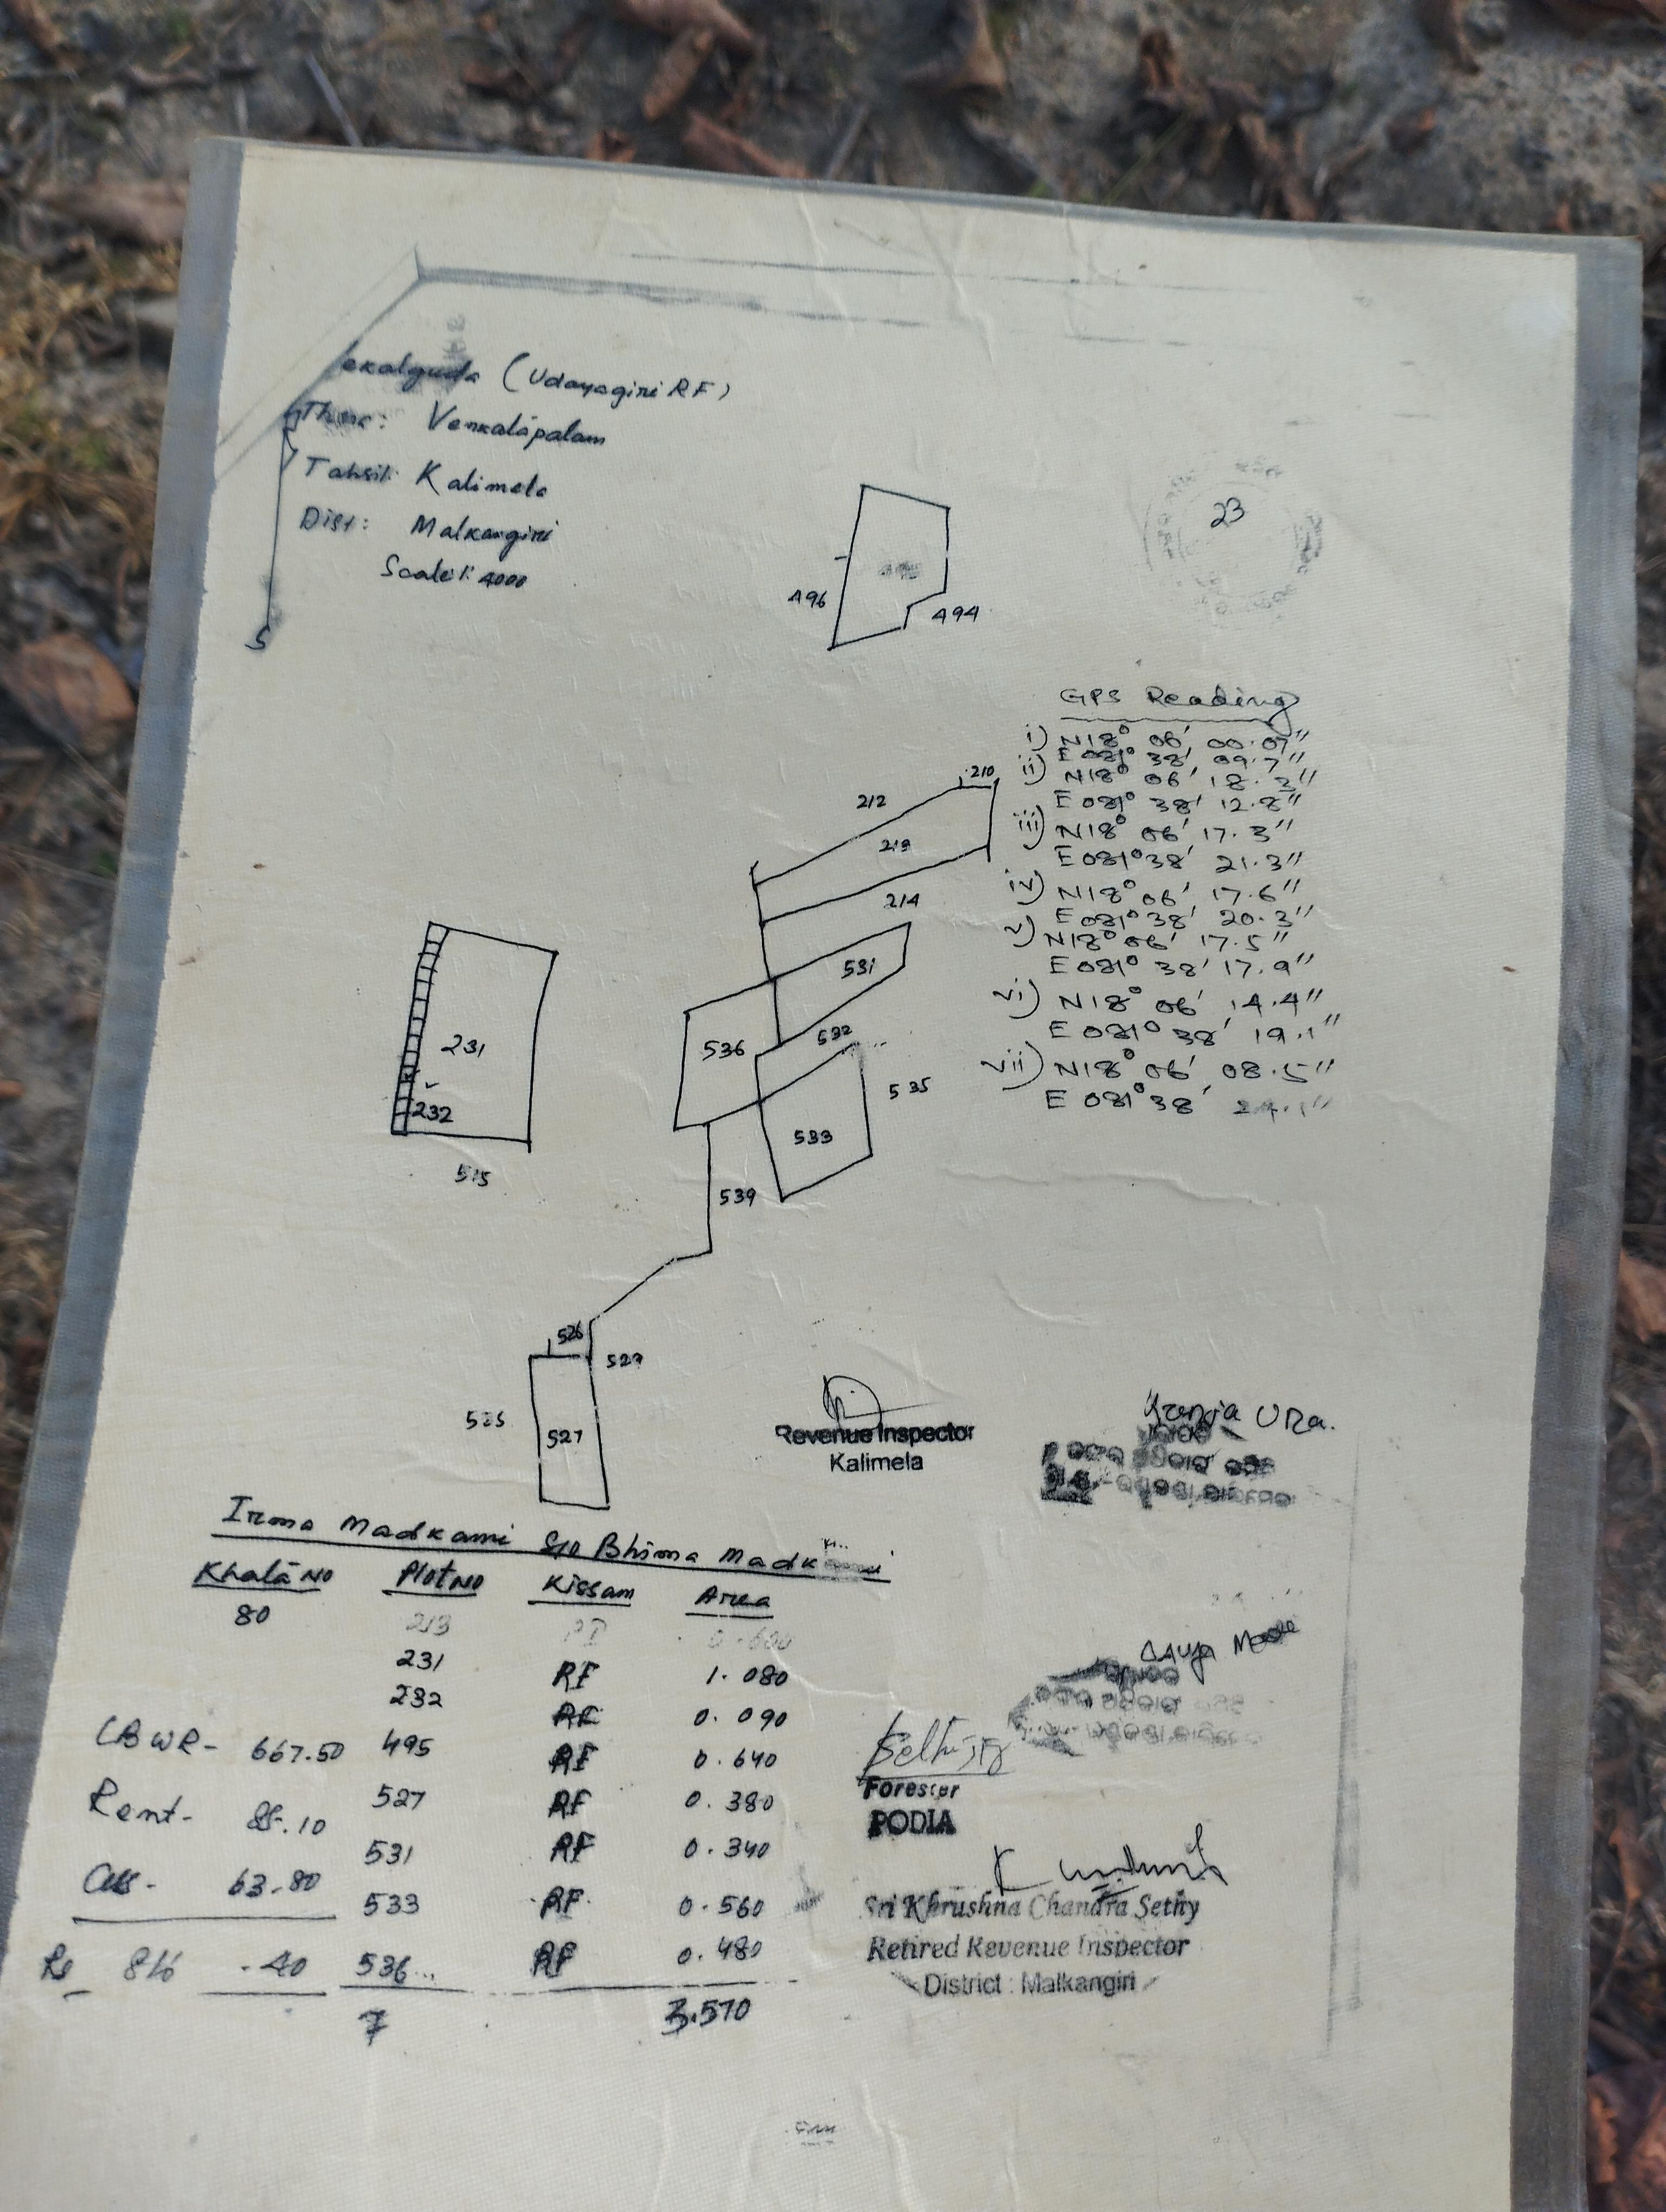 ekalguda (Udayagiri RF)
Thana: Venkatapalam
Tahsil: Kalimela
Dist: Malkangiri
Scale 1: 4000
S
23
496
494
GPS Reading
i) N18° 06' 00.07"
E 081° 38' 09.7"
ii) N18° 06' 18.3"
E 081° 38' 12.8"
iii) N18° 06' 17.3"
E 081° 38' 21.3"
iv) N18° 06' 17.6"
E 081° 38' 20.3"
v) N18° 06' 17.5"
E 081° 38' 17.9"
vi) N18° 06' 14.4"
E 081° 38' 19.1"
vii) N18° 06' 08.5"
E 081° 38'
210
212
213
214
531
231
536
532
232
535
533
515
539
526
529
525
527
Revenue Inspector
Kalimela
Irma Madkami S/o Bhima Madkami
Khata No Plot No Kissam Area
80 213 0.600
231 RF 1.080
232 RF 0.090
CBWR- 667.50 495 RF 0.640
527 RF 0.380
Rent- 85.10
531 RF 0.340
Cess- 63.80 533 RF 0.560
Rs 816.40 536 RF 0.480
7 3.570
Forester
PODIA
Sri Khrushna Chandra Sethy
Retired Revenue Inspector
District : Malkangiri